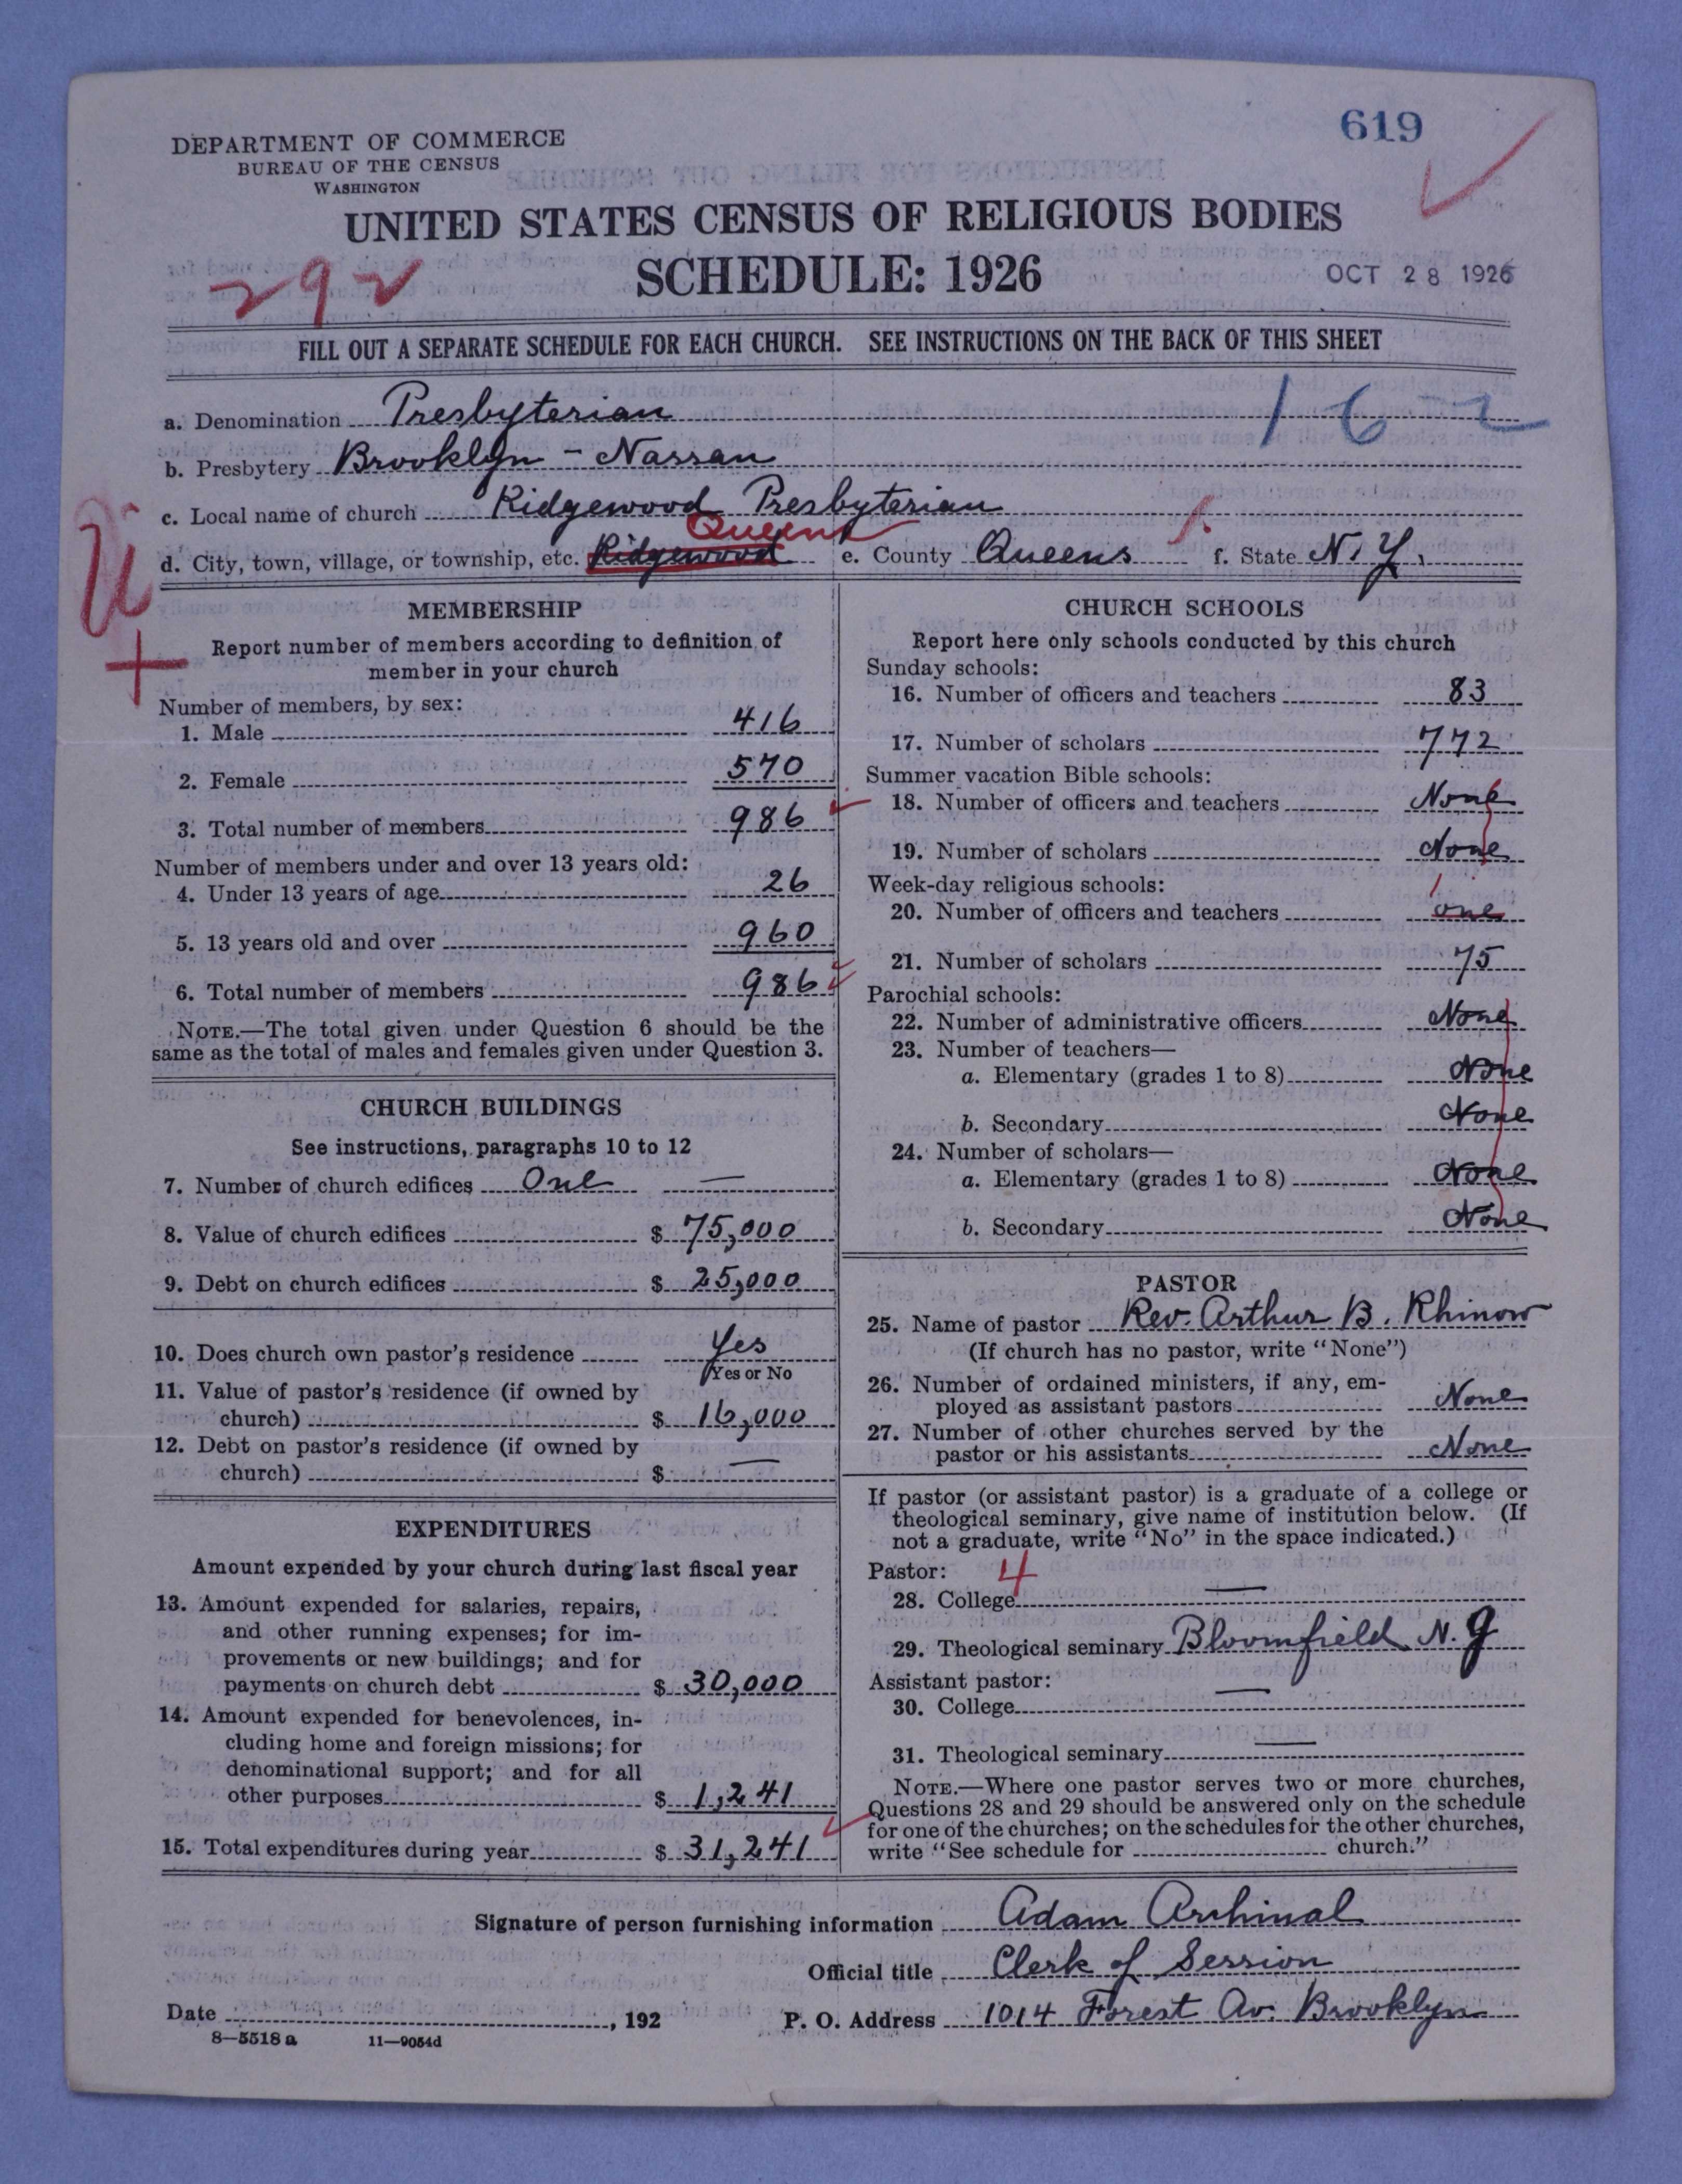 619
DEPARTMENT OF COMMERCE
BUREAU OF THE CENSUS
WASHINGTON
UNITED STATES CENSUS OF RELIGIOUS BODIES
292
SCHEDULE: 1926
OCT 28 1926
FILL OUT A SEPARATE SCHEDULE FOR EACH CHURCH. SEE INSTRUCTIONS ON THE BACK OF THIS SHEET
162
a. Denomination Presbyterian
b. Presbytery Brooklyn - Nassau
c. Local name of church Ridgewood Presbyterian
Queens
d. City, town, village, or township, etc. Ridgewood e. County Queens f. State N.Y.
MEMBERSHIP
Report number of members according to definition of
member in your church
Number of members, by sex:
1. Male 416
2. Female 570
3. Total number of members 986
Number of members under and over 13 years old:
4. Under 13 years of age 26
5. 13 years old and over 960
6. Total number of members 986
NOTE.—The total given under Question 6 should be the
same as the total of males and females given under Question 3.
CHURCH BUILDINGS
See instructions, paragraphs 10 to 12
7. Number of church edifices One —
8. Value of church edifices $ 75,000
9. Debt on church edifices $ 25,000
10. Does church own pastor's residence Yes
Yes or No
11. Value of pastor's residence (if owned by
church) $ 16,000
12. Debt on pastor's residence (if owned by
church) $ —
EXPENDITURES
Amount expended by your church during last fiscal year
13. Amount expended for salaries, repairs,
and other running expenses; for im-
provements or new buildings; and for
payments on church debt $ 30,000
14. Amount expended for benevolences, in-
cluding home and foreign missions; for
denominational support; and for all
other purposes $ 1,241
15. Total expenditures during year $ 31,241
CHURCH SCHOOLS
Report here only schools conducted by this church
Sunday schools:
16. Number of officers and teachers 83
17. Number of scholars 772
Summer vacation Bible schools:
18. Number of officers and teachers None
19. Number of scholars None
Week-day religious schools:
1
20. Number of officers and teachers one
21. Number of scholars 75
Parochial schools:
22. Number of administrative officers None
23. Number of teachers—
a. Elementary (grades 1 to 8) None
b. Secondary None
24. Number of scholars—
a. Elementary (grades 1 to 8) None
b. Secondary None
PASTOR
25. Name of pastor Rev. Arthur B. Rhinow
(If church has no pastor, write "None")
26. Number of ordained ministers, if any, em-
ployed as assistant pastors None
27. Number of other churches served by the
pastor or his assistants None
If pastor (or assistant pastor) is a graduate of a college or
theological seminary, give name of institution below. (If
not a graduate, write "No" in the space indicated.)
Pastor: 4
28. College —
29. Theological seminary Bloomfield N.J
Assistant pastor:
30. College —
31. Theological seminary —
NOTE.—Where one pastor serves two or more churches,
Questions 28 and 29 should be answered only on the schedule
for one of the churches; on the schedules for the other churches,
write "See schedule for church."
Signature of person furnishing information Adam Archinal
Official title Clerk of Session
Date , 192 P. O. Address 1014 Forest Av. Brooklyn
8—5518 a 11—9054d